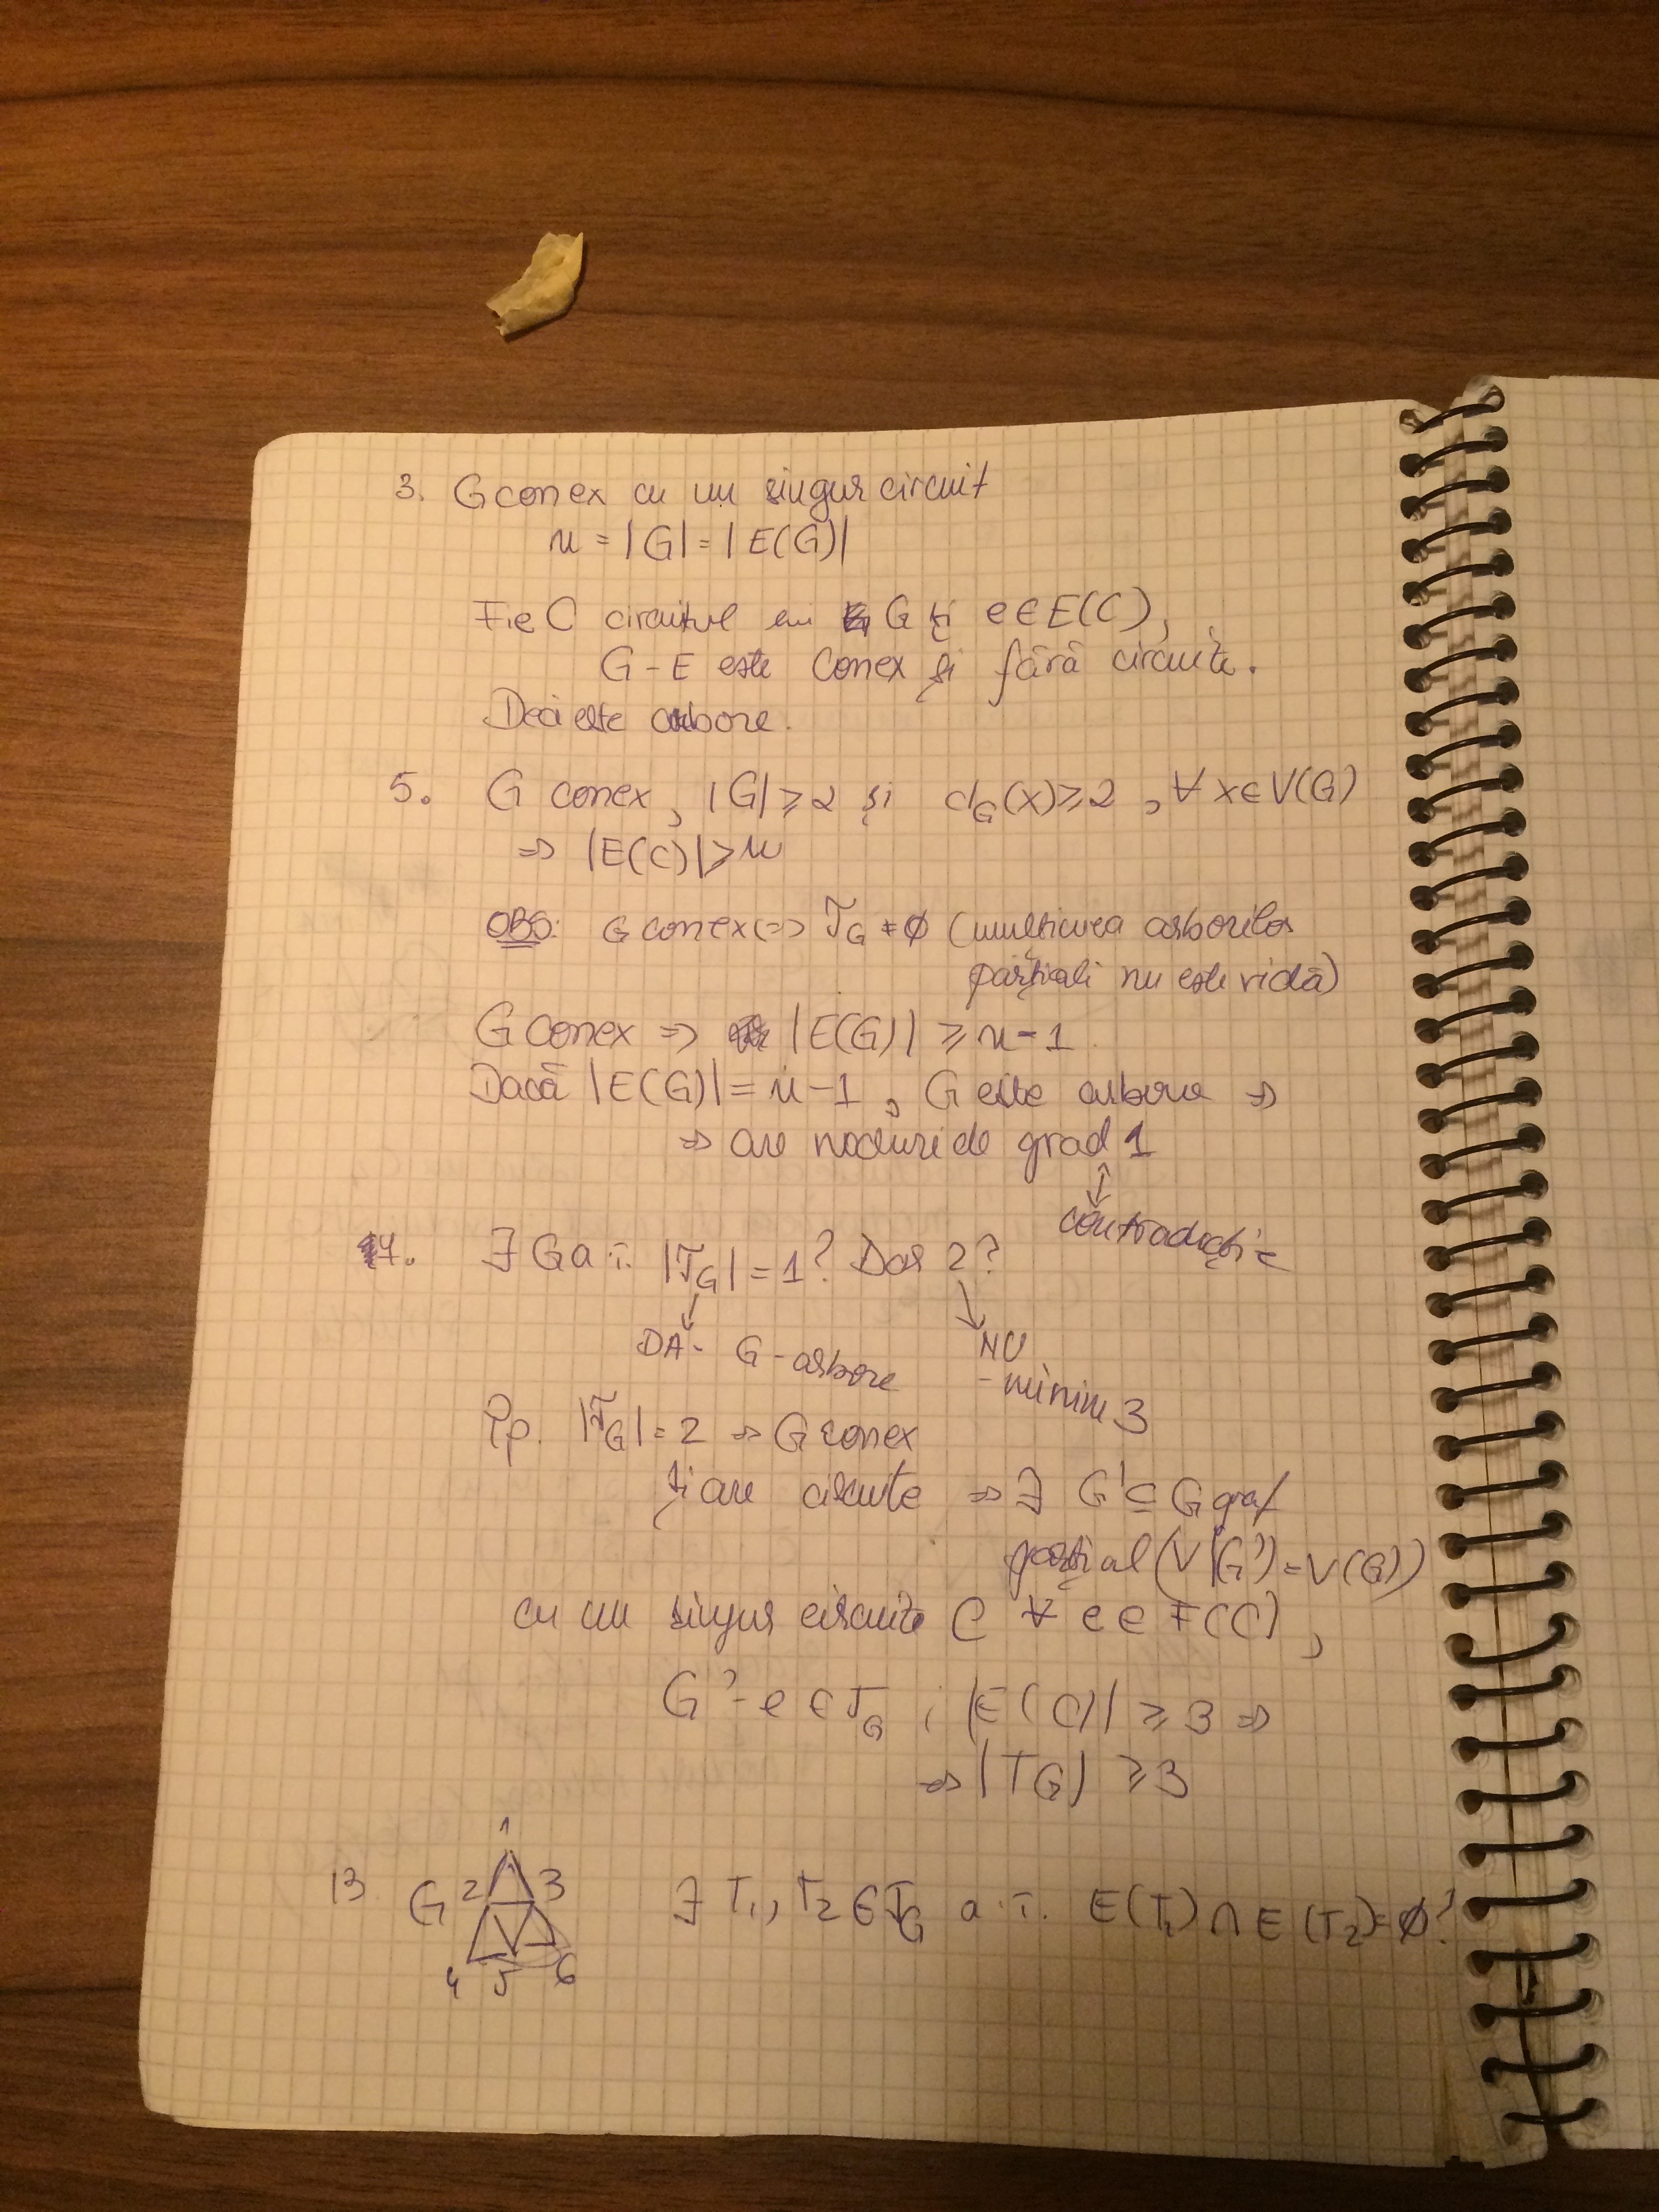 3. G conex cu un singur circuit
n = |G| = |E(G)|
Fie C circuitul din G și e∈E(C),
G-E este conex și fără circuite.
Deci este arbore.
5. G conex, |G|≥2 și d_G(x)≥2, ∀ x∈V(G)
⇒ |E(C)|≥n
OBS: G conex ⇔ T_G ≠ ∅ (mulțimea arborilor
parțiali nu este vidă)
G conex ⇒ |E(G)| ≥ n-1
Dacă |E(G)| = n-1, G este arbore ⇒
⇒ are noduri de grad 1
contradicție
7. ∃ G a.î. |T_G| = 1? Dar 2?
DA - G-arbore
NU
- minim 3
Pp. |T_G| = 2 ⇒ G conex
și are circuite ⇒ ∃ G' ⊆ G graf
parțial (V(G') = V(G))
cu un singur circuite C ∀ e∈E(C),
G'-e ∈ T_G, |E(C)| ≥ 3 ⇒
⇒ |TG| ≥ 3
13 G ∃ T1, T2 ∈ T_G a.î. E(T1) ∩ E(T2) = ∅?
1
2 3
4 5 6